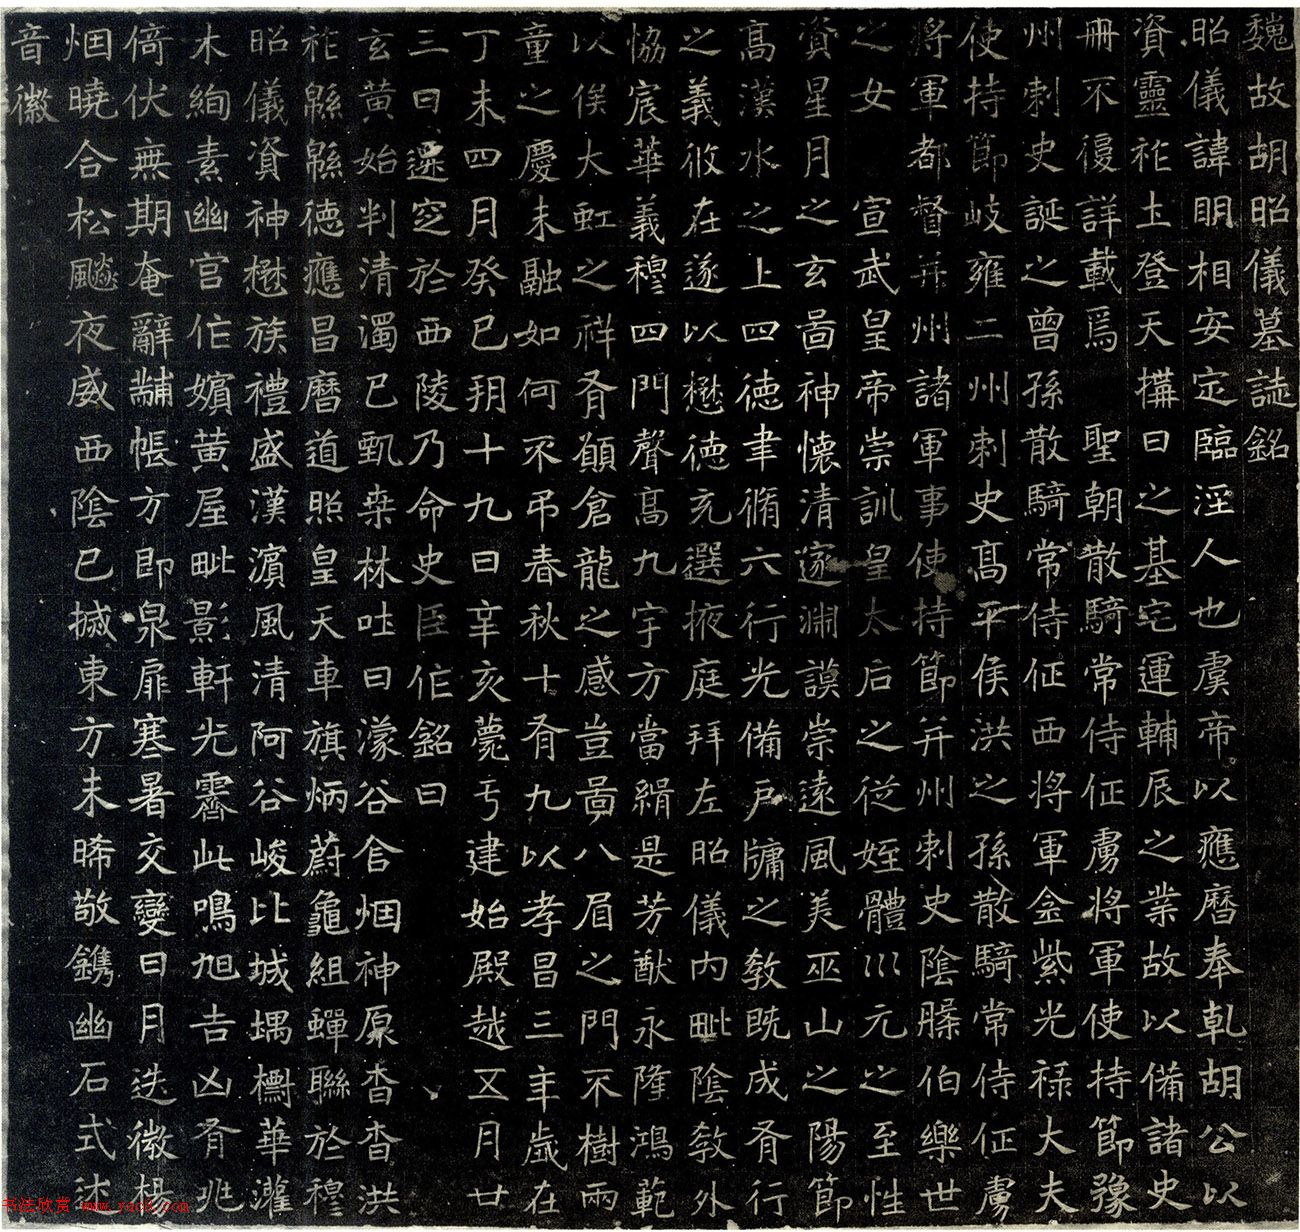 魏故胡昭儀墓誌銘
昭儀諱明相安定臨涇人也虞帝以應曆奉乹胡公以
資靈祚土登天構日之基宅運輔辰之業故以備諸史
冊不復詳載焉 聖朝散騎常侍征虜將軍使持節豫
州刺史誕之曾孫散騎常侍征西將軍金紫光祿大夫
使持節岐雍二州刺史高平侯洪之孫散騎常侍征虜
將軍都督并州諸軍事使持節并州刺史陰槃伯樂世
之女 宣武皇帝崇訓皇太后之從姪體巛元之至性
資星月之玄啚神懷清邃淵謨崇遠風美巫山之陽節
高漢水之上四德聿脩六行光備戶牖之教既成有行
之義攸在遂以懋德充選掖庭拜左昭儀內毗陰教外
協宸華義穆四門聲高九宇方當緝是芳猷永隆鴻範
以俟大虹之祥有願倉龍之感豈啚八眉之門不樹兩
童之慶未融如何不弔春秋十有九以孝昌三年歲在
丁未四月癸巳朔十九日辛亥薨于建始殿越五月廿
三日遷窆於西陵乃命史臣作銘曰
玄黃始判清濁已甄桒林吐日濛谷含烟神原杳杳洪
祚緜緜德應昌曆道照皇天車旗炳蔚龜組蟬聯於穆
昭儀資神懋族禮盛漢濱風清阿谷峻比城堣檦華灌
木絢素幽宮作嬪黃屋毗影軒光霽此鳴旭吉凶有兆
倚伏無期奄辭黼帳方即泉扉寒暑交變日月迭微楊
烟曉合松飈夜威西陰已摵東方未晞敬鐫幽石式述
音徽
书法欣赏 www.yac8.com